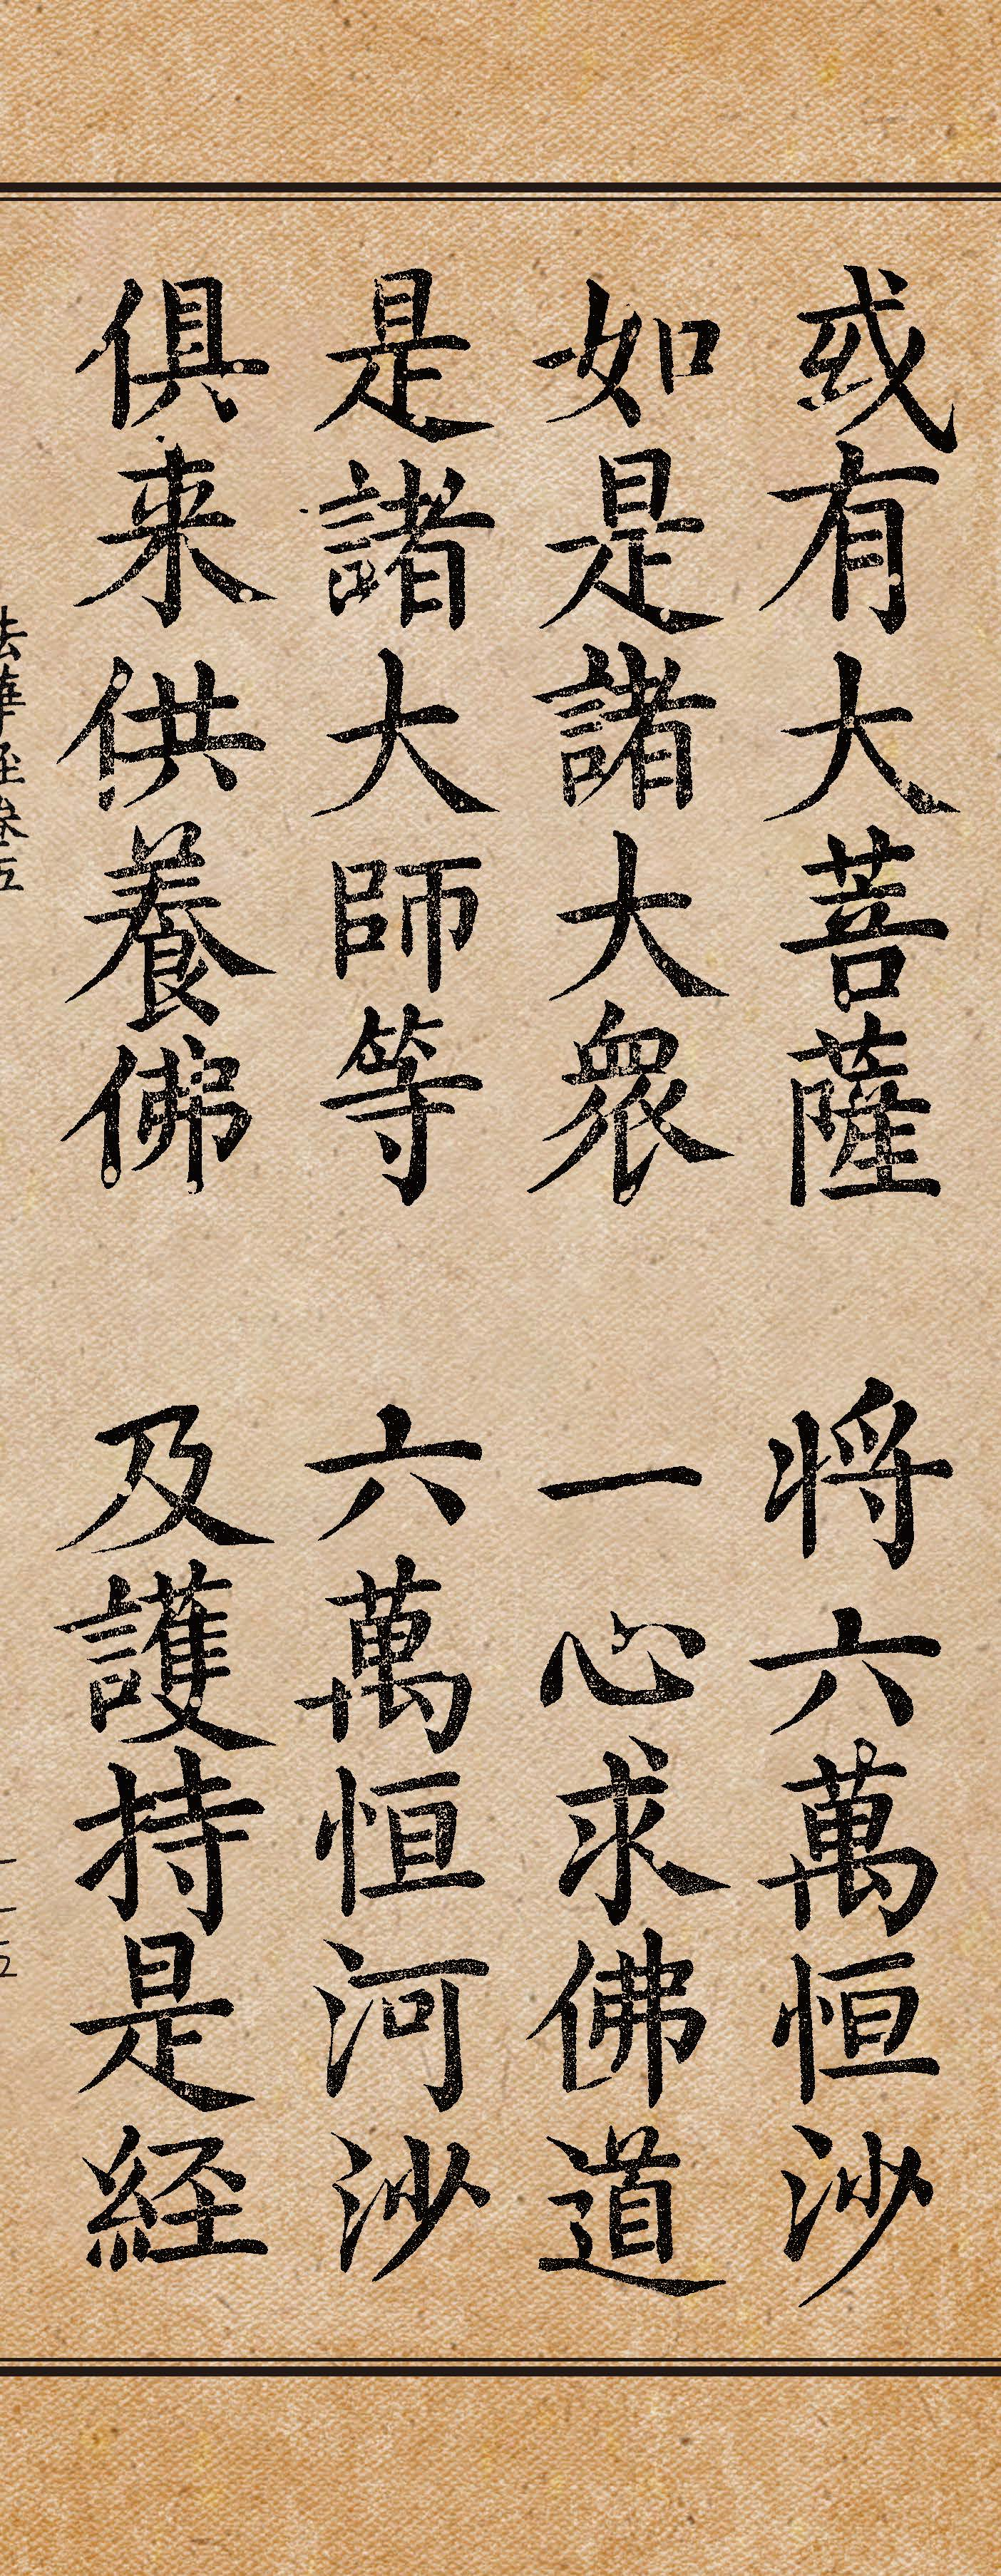 或有大菩薩 將六萬恒沙
如是諸大衆 一心求佛道
是諸大師等 六萬恒河沙
俱来供養佛 及護持是経
法華経巻五